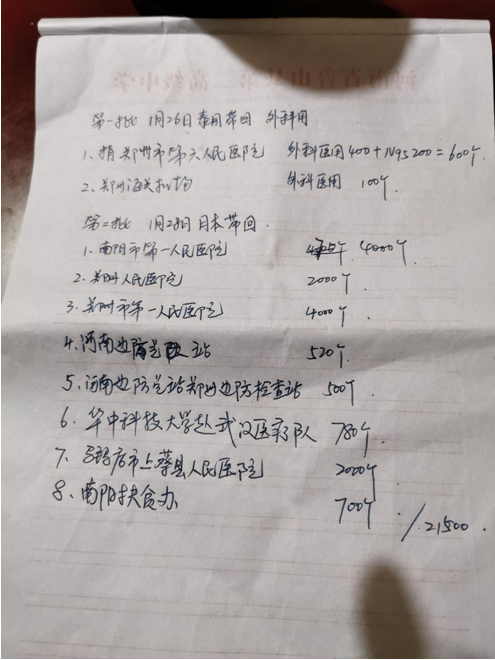 河南省鲁山县第二高级中学
第一批 1月26日泰国带回 外科用
1、捐郑州市第六人民医院 外科医用400+N95200=600个
2、郑州海关机场 外科医用 100个.
第二批 1月28日日本带回.
1、南阳市第一人民医院 4000个
2、郑州人民医院 2000个
3、郑州市第一人民医院 4000个.
4、河南边防总队站 520个.
5、河南边防总站郑州边防检查站 500个
6、华中科技大学赴武汉医疗队 780个.
7、驻马店市上蔡县人民医院 2000个.
8、南阳扶贫办 700个. /21500.